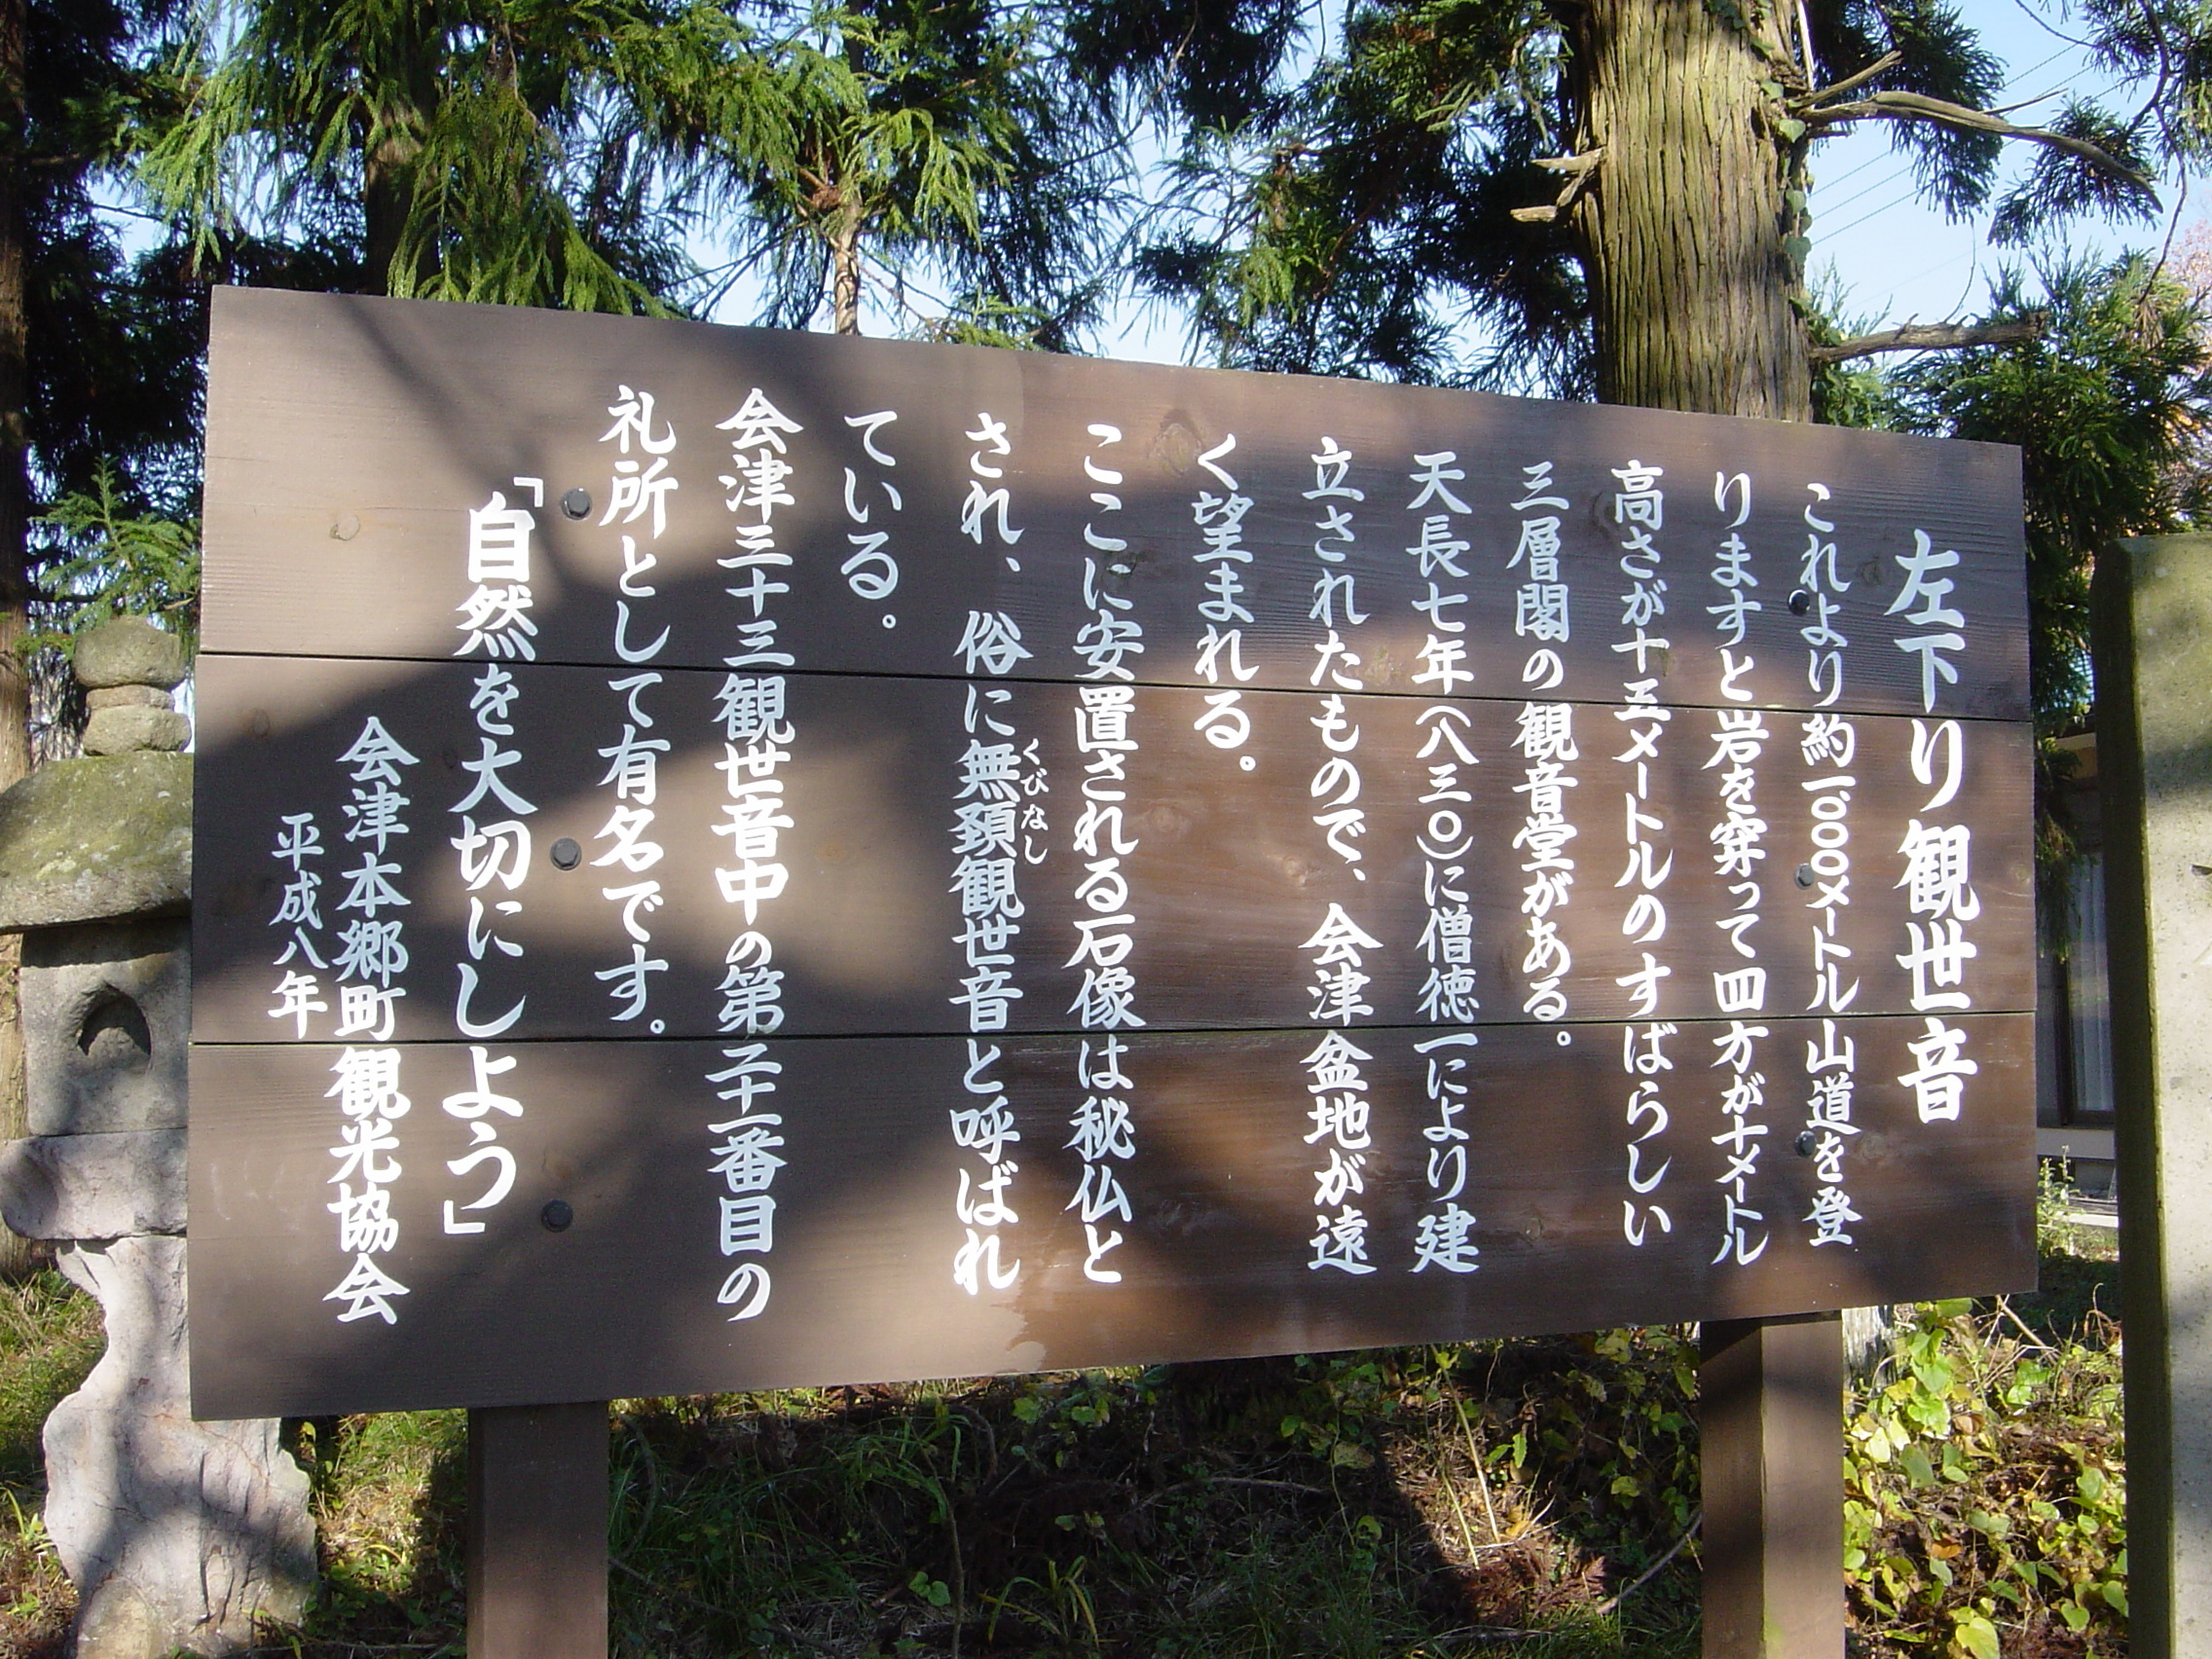 左下り観世音
これより約一、000メートル山道を登
りますと岩を穿って四方が十メートル
高さが十五メートルのすばらしい
三層閣の観音堂がある。
天長七年(八三〇)に僧徳一により建
立されたもので、会津盆地が遠
く望まれる。
ここに安置される石像は秘仏と
され、俗に無頚観世音と呼ばれ
くびなし
ている。
会津三十三観世音中の第二十一番目の
礼所として有名です。
「自然を大切にしよう」
会津本郷町観光協会
平成八年